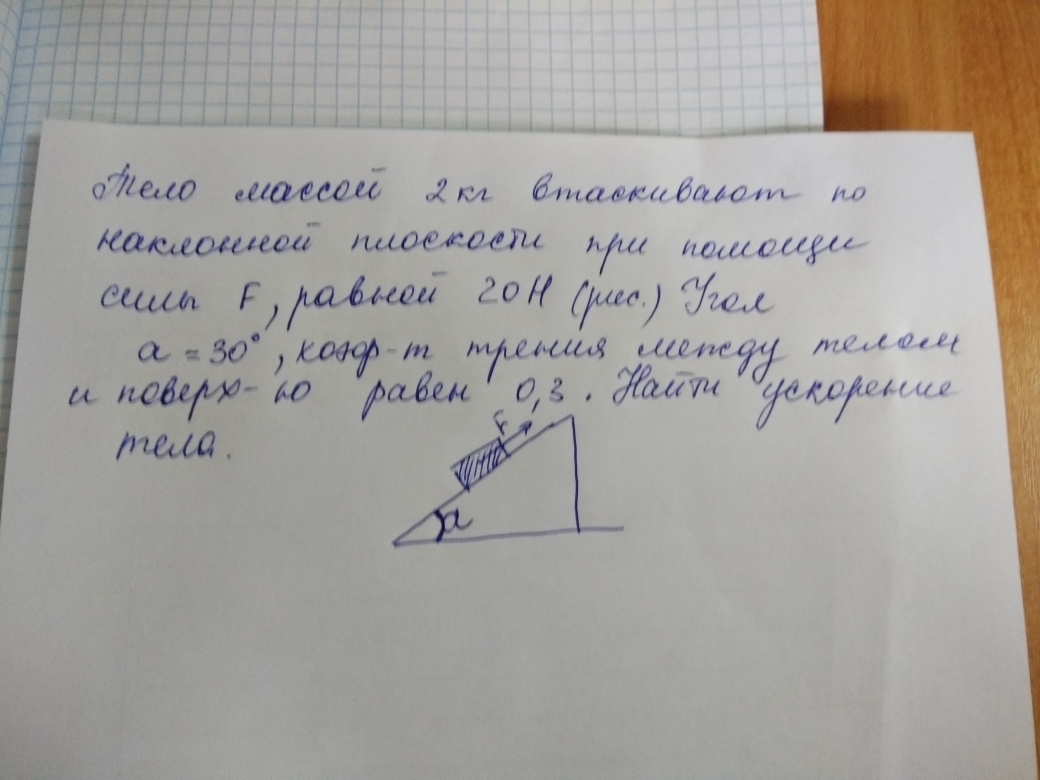 Тело массой 2 кг втаскивают по
наклонной плоскости при помощи
силы F, равной 20 Н (рис.) Угол
a = 30°, коэф-т трения между телом
и поверх-ю равен 0,3. Найти ускорение
тела.
F
a